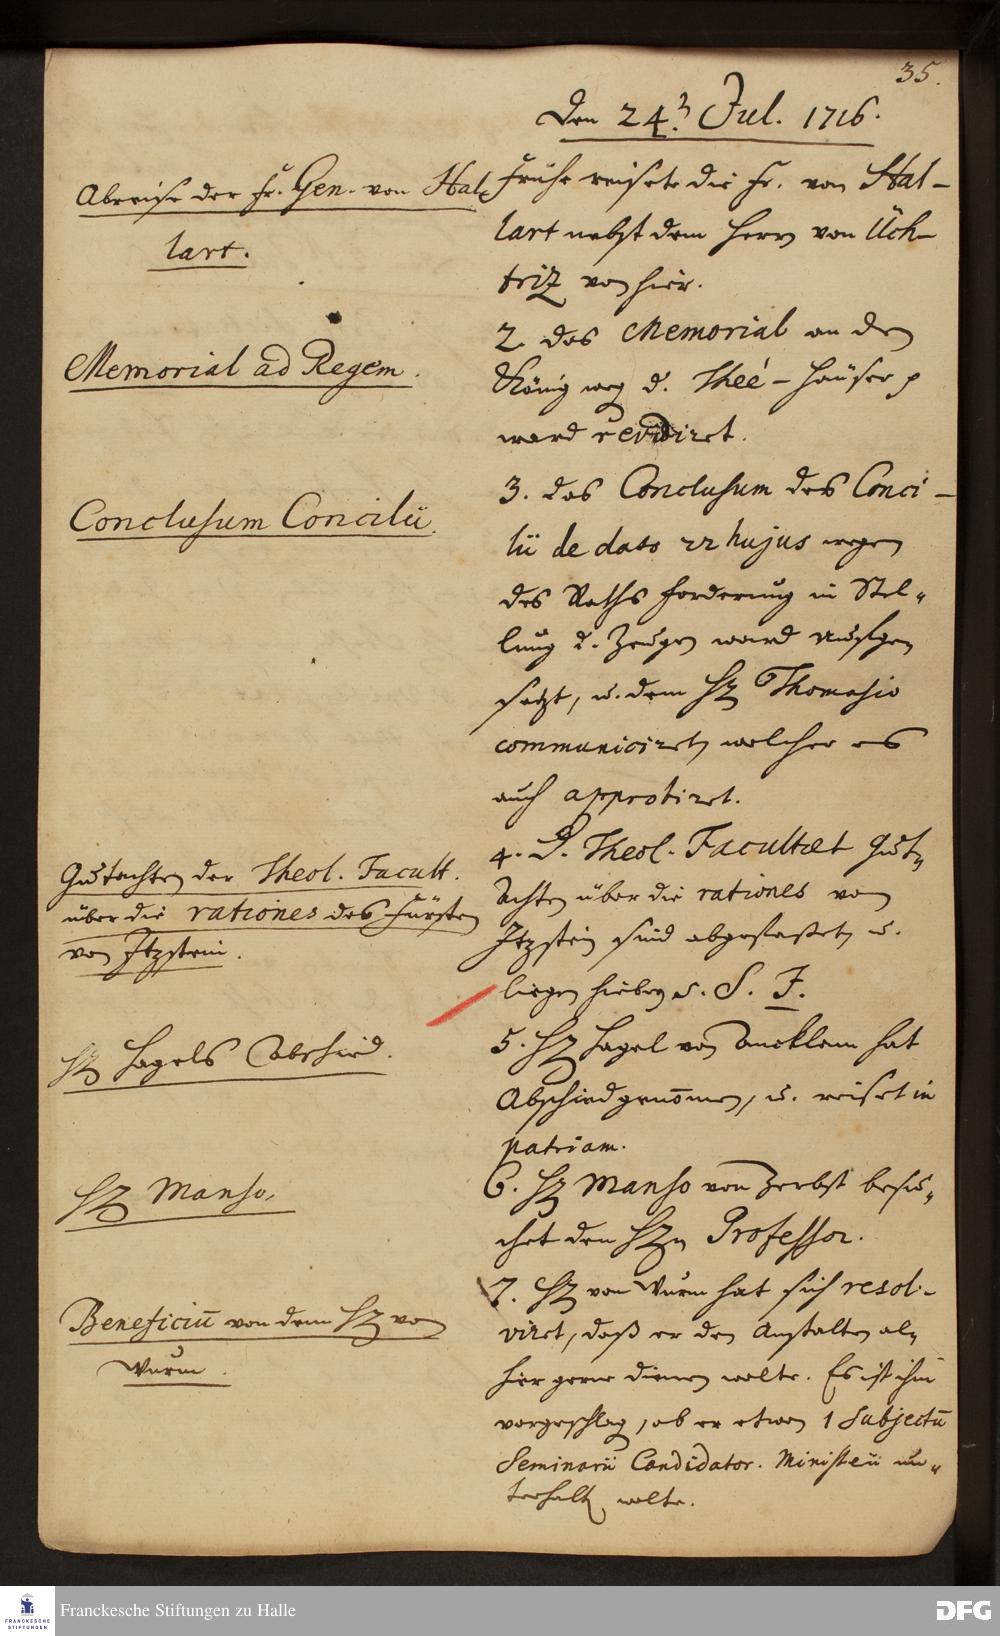 35.
Den 24. Jul. 1716.
Abreise der Fr. Gen. von Hal-
lart.
Frühe reisete die Fr. von Hal-
lart nebst dem Herrn von Üch-
triz von hier.
Memorial ad Regem.
2. das Memorial an den
König weg. d. Theé-Häuser p
ward revidiret.
Conclusum Concilii.
3. das Conclusum des Conci-
lii de dato 22 hujus wegen
des Raths Forderung in Stel-
lung d. Zeugen ward aufge-
setzt, u. dem H. Thomasio
communiciret, welcher es
auch approbiret.
Gutachten der Theol. Facult.
über die rationes des Fürsten
von Itzstein.
4. D. Theol. Facultæt Gut-
achten über die rationes von
Itzstein sind abgefasset, u.
liegen hiebey s. S. F.
H. Hagels Abschied.
5. H. Hagel von hat
Abschied genommen, u. reiset in
patriam.
H. Manso.
6. H. Manso von Zerbst besu-
chet den Hn Professor.
Beneficiū von dem H. von
Wurm.
7. H. von Wurm hat sich resol-
viret, daß er den Anstalten al-
hier gerne dienen wolte. Es ist ihm
vorgeschlag, ob er etwan 1 Subjectū
Seminarii Candidator. Ministerii un-
terhalt. wolte.
Franckesche Stiftungen zu Halle
FRANCKESCHE
STIFTUNGEN
DFG